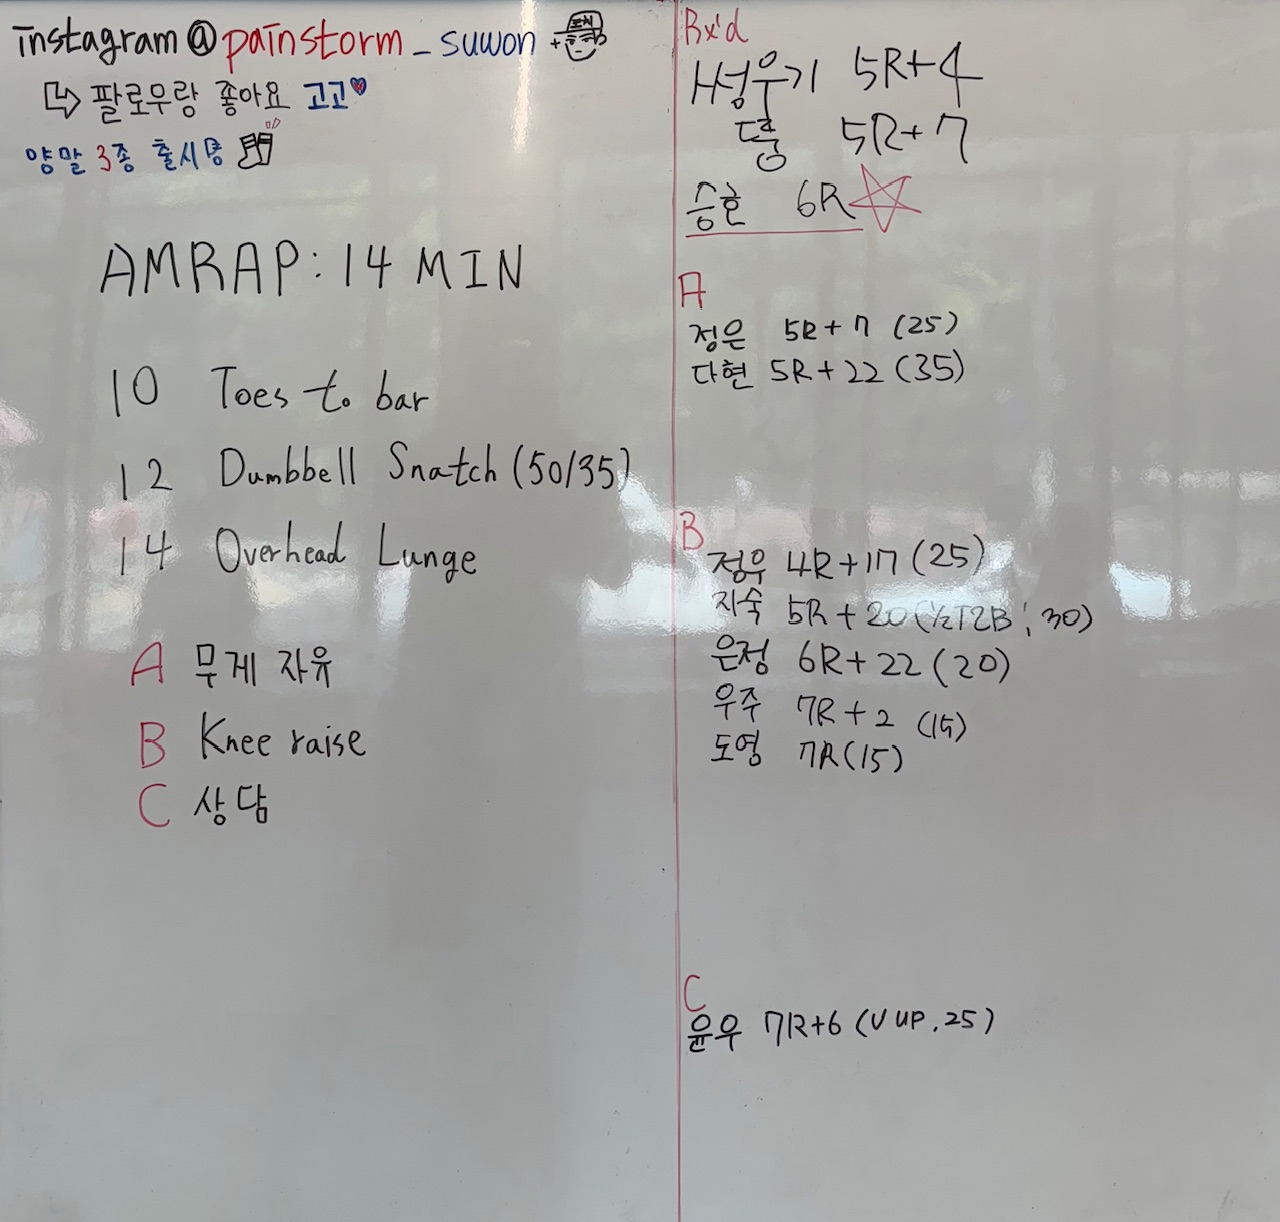 instagram@painstorm_suwon
팔로우랑 좋아요 고고
양말 3종 출시용
AMRAP : 14 MIN
10 Toes to bar
12 Dumbbell Snatch (50/35)
14 Overhead Lunge
A 무게 자유
B Knee raise
C 상담
Rx'd
5R+4
5R+7
승호 6R
A
정은 5R+7 (25)
다현 5R+22 (35)
B
정우 4R+17 (25)
지숙 5R+20 (½T2B, 30)
은정 6R+22 (20)
우주 7R+2 (15)
도영 7R (15)
C
윤우 7R+6 (V UP, 25)